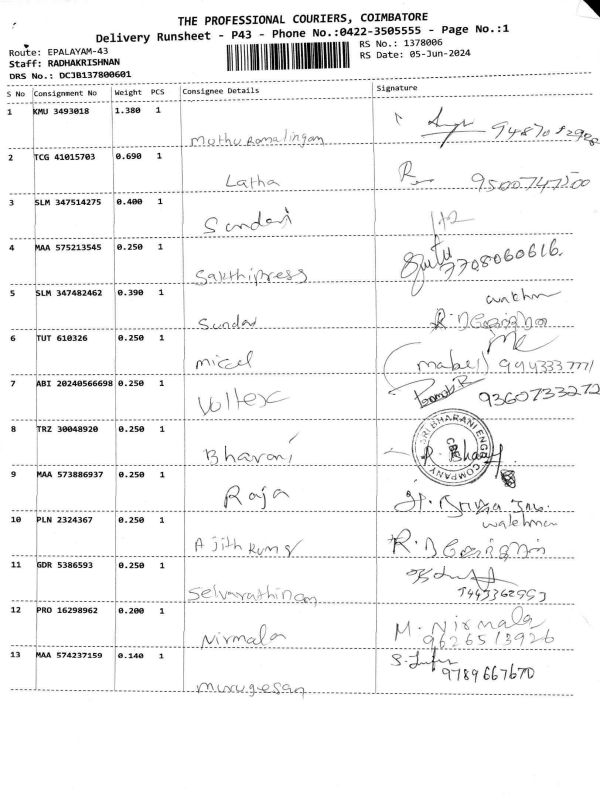 THE PROFESSIONAL COURIERS, COIMBATORE
Delivery Runsheet - P43 - Phone No.:0422-3505555 - Page No.:1
Route: EPALAYAM-43
RS No.: 1378006
Staff: RADHAKRISHNAN
RS Date: 05-Jun-2024
DRS No.: DCJB137800601
S No Consignment No Weight PCS Consignee Details Signature
1 KMU 3493018 1.380 1
Muthuramalingam
2 TCG 41015703 0.690 1
Latha
9500747200
3 SLM 347514275 0.400 1
Sundari
4 MAA 575213545 0.250 1
Sakthipress
7708060616.
5 SLM 347482462 0.390 1
Sundar
6 TUT 610326 0.250 1
micel
(mabel) 994333771
7 ABI 20240566698 0.250 1
Voltex
9360733272
8 TRZ 30048920 0.250 1
Bharani
SRI BHARANI ENGG COMPANY
CBE
9 MAA 573886937 0.250 1
Raja
10 PLN 2324367 0.250 1
Ajith kumar
watchman
11 GDR 5386593 0.250 1
Selvarathinam
12 PRO 16298962 0.200 1
Nirmala
M. Nirmala
9626513926
13 MAA 574237159 0.140 1
murugesan
9789667670